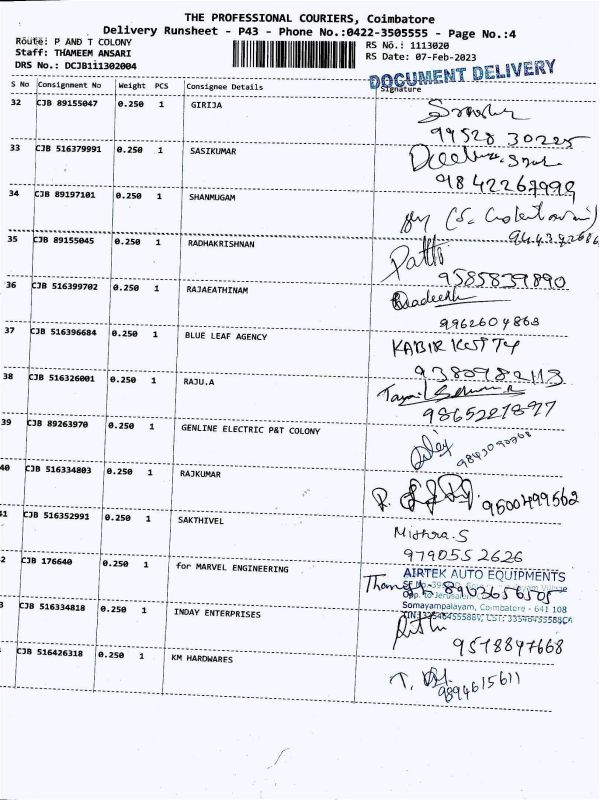 THE PROFESSIONAL COURIERS, Coimbatore
Delivery Runsheet - P43 - Phone No.:0422-3505555 - Page No.:4
Route: P AND T COLONY
Staff: THAMEEM ANSARI
DRS No.: DCJB111302004
RS No.: 1113020
RS Date: 07-Feb-2023
DOCUMENT DELIVERY
S No Consignment No Weight PCS Consignee Details Signature
32 CJB 89155047 0.250 1 GIRIJA
99528 30225
33 CJB 516379991 0.250 1 SASIKUMAR
9842267999
34 CJB 89197101 0.250 1 SHANMUGAM
35 CJB 89155045 0.250 1 RADHAKRISHNAN
9585839890
36 CJB 516399702 0.250 1 RAJAEATHINAM
9962604868
37 CJB 516396684 0.250 1 BLUE LEAF AGENCY
KABIR
9380982113
38 CJB 516326001 0.250 1 RAJU.A
9865221897
39 CJB 89263970 0.250 1 GENLINE ELECTRIC P&T COLONY
40 CJB 516334803 0.250 1 RAJKUMAR
9500499562
41 CJB 516352991 0.250 1 SAKTHIVEL
Mithra.S
9790552626
2 CJB 176640 0.250 1 for MARVEL ENGINEERING
AIRTEK AUTO EQUIPMENTS
8903656505
Somayampalayam, Coimbatore - 641 108
3 CJB 516334818 0.250 1 INDAY ENTERPRISES
9518897668
CJB 516426318 0.250 1 KM HARDWARES
9894615611